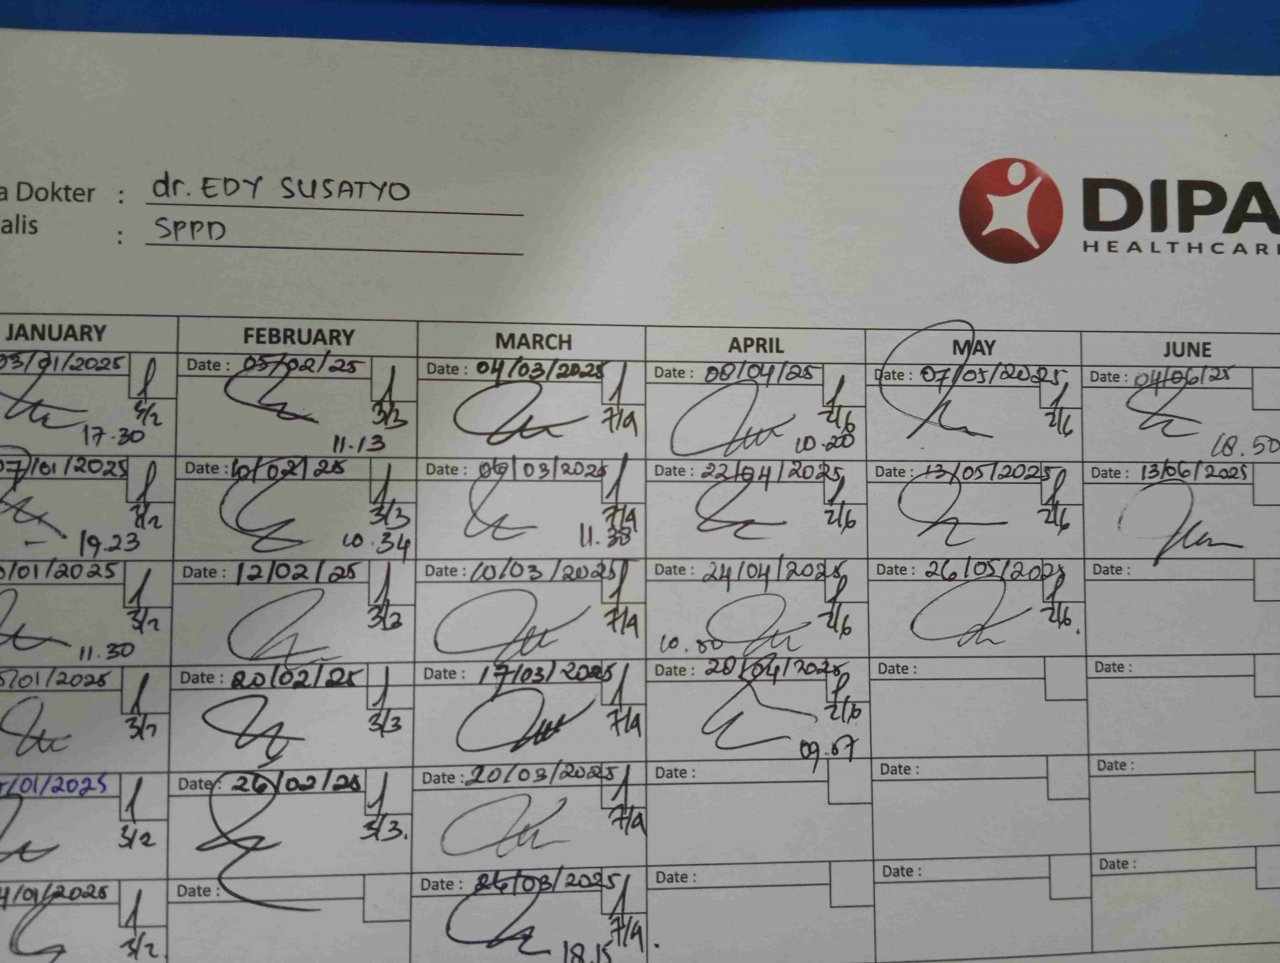 a Dokter : dr. EDY SUSATYO
alis : SPPD
DIPA
HEALTHCAR
JANUARY FEBRUARY MARCH APRIL MAY JUNE
03/01/2025 Date : 05/02/25 Date : 04/03/2025 Date : 08/04/25 Date : 07/05/2025 Date : 04/06/25
3/2 3/3 7/4 2/6 2/6
17.30 11.13 10.20 18.50
07/01/2025 Date : 10/02/25 Date : 06/03/2025 Date : 22/04/2025 Date : 13/05/2025 Date : 13/06/2025
3/2 3/3 7/4 2/6 2/6
19.23 10.34 11.38
/01/2025 Date : 12/02/25 Date : 10/03/2025 Date : 24/04/2025 Date : 26/05/2025 Date :
3/2 3/3 7/4 2/6 2/6.
11.30
/01/2025 Date : 20/02/25 Date : 17/03/2025 Date : 28/04/2025 Date : Date :
3/2 3/3 7/4 2/6
09.07
/01/2025 Date : 26/02/25 Date : 20/03/2025 Date : Date : Date :
3/2 3/3. 7/4
/01/2025 Date : Date : 26/03/2025 Date : Date : Date :
3/2. 7/4.
18.15